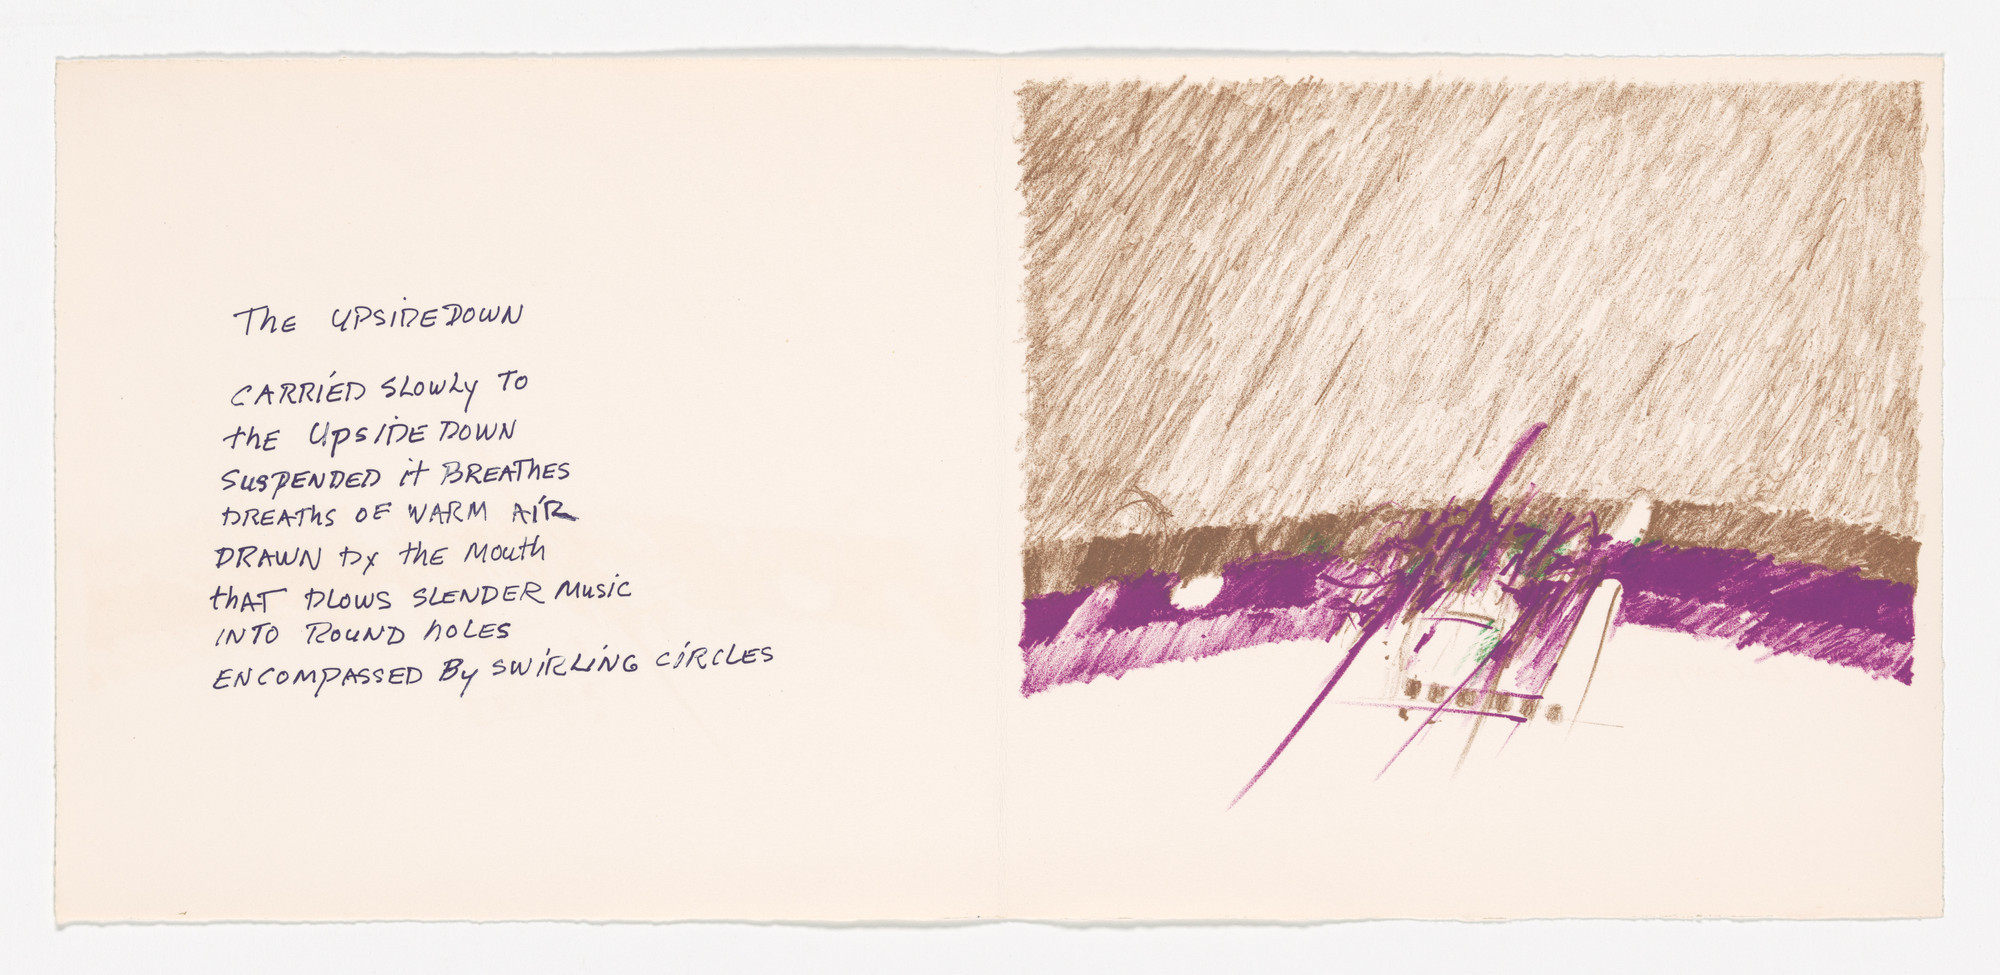 The UPSIDEDOWN
CARRIED SLOWLY TO
thE UpSIDE DOWN
SUSPENDED it BREAThES
BREAThS OF WARM AIR
DRAWN by the Mouth
thAT BLOWS SLENDER MUSIC
INTO ROUND hOLES
ENCOMPASSED By SWIRLING CIRCLES